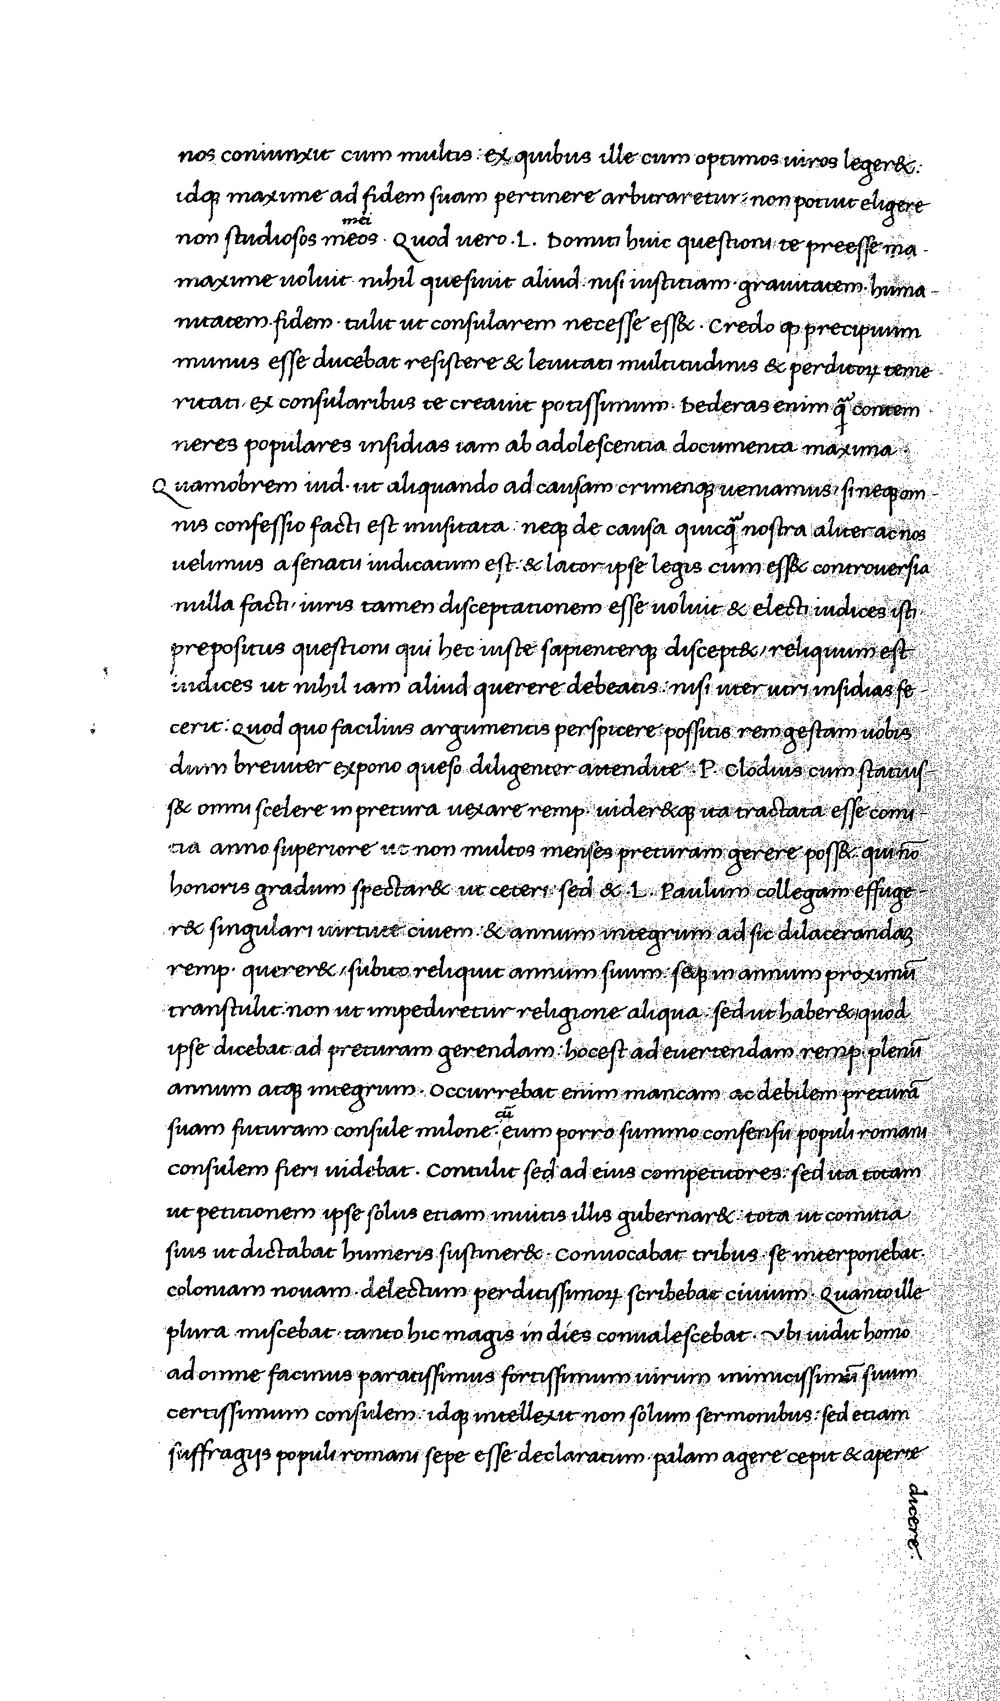 nos coniunxit cum multis: ex quibus ille cum optimos uiros leger&:
idq; maxime ad fidem suam pertinere arbitraretur: non potuit eligere
mei
non studiosos meos. Quod uero .L. Domiti huic questioni te preesse ma-
maxime uoluit nihil quesiuit aliud nisi iustitiam. grauitatem. huma-
nitatem. fidem. tulit ut consularem necesse ess&. Credo qp precipuum
munus esse ducebat resistere & leuitati multitudinis & perditoꝝ teme-
ritati. ex consularibus te creauit potissimum. Dederas enim q̃ contem
neres populares insidias iam ab adolescentia documenta maxima.
Quamobrem iud. ut aliquando ad causam crimenq; ueniamus: si neq; om-
nis confessio facti est inusitata. neq; de causa quicq̃ nostra aliter ac nos
uelimus a senatu iudicatum est: & lator ipse legis cum ess& controuersia
nulla facti: iuris tamen disceptationem esse uoluit & electi iudices isti
prepositus questioni qui hec iuste sapienterq; discept&, reliquum est
iudices ut nihil iam aliud querere debeatis: nisi uter utri insidias fe-
cerit: Quod quo facilius argumentis perspicere possitis rem gestam uobis
dum breuiter expono queso diligenter attendite. P. Clodius cum statuis-
s& omni scelere in pretura uexare remp. uider&q; ita tractata esse comi-
tia anno superiore ut non multos menses preturam gerere poss&. qui nō
honoris gradum spectar& ut ceteri sed & L. Paulum collegam effuge-
r& singulari uirtute ciuem. & annum integrum ad sic dilacerandaʒ
remp. querer&, subito reliquit annum suum: seq; in annum proximū
transtulit. non ut impediretur religione aliqua. sed ut haber& quod
ipse dicebat ad preturam gerendam: hoc est ad euertendam remp. plenū
annum atq; integrum. Occurrebat enim mancam ac debilem preturā
cū
suam futuram consule milone: eum porro summo consensu populi romani
consulem fieri uidebat. Contulit sed ad eius competitores: sed ita totam
ut petitionem ipse solus etiam inuitis illis gubernar&: tota ut comitia
suis ut dictabat humeris sustiner&. Conuocabat tribus. se interponebat.
coloniam nouam. delectum perditissimoꝝ scribebat ciuium. Quanto ille
plura miscebat. tanto hic magis in dies conualescebat. Vbi uidit homo
ad omne facinus paratissimus fortissimum uirum inimicissimū suum
certissimum consulem: idq; intellexit non solum sermonibus: sed etiam
suffragijs populi romani sepe esse declaratum. palam agere cepit & aperte
dicere.